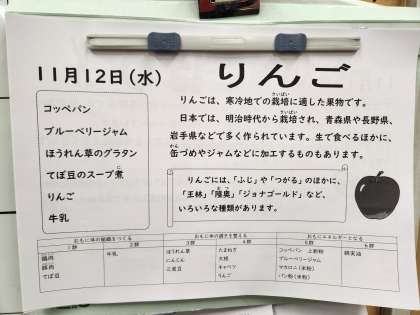 11月12日(水)
りんご
コッペパン
ブルーベリージャム
ほうれん草のグラタン
てぼ豆のスープ煮
りんご
牛乳
りんごは、寒冷地での栽培に適した果物です。
日本では、明治時代から栽培され、青森県や長野県、
岩手県などで多く作られています。生で食べるほかに、
缶づめやジャムなどに加工するものもあります。
りんごには、「ふじ」や「つがる」のほかに、
「王林」「陸奥」「ジョナゴールド」など、
いろいろな種類があります。
おもに体の組織をつくる
おもに体の調子を整える
おもにエネルギーとなる
1群
2群
3群
4群
5群
6群
鶏肉
豚肉
てぼ豆
牛乳
ほうれん草
にんじん
たまねぎ
大根
キャベツ
りんご
コッペパン 上新粉
ブルーベリージャム
マカロニ(米粉)
パン粉(米粉)